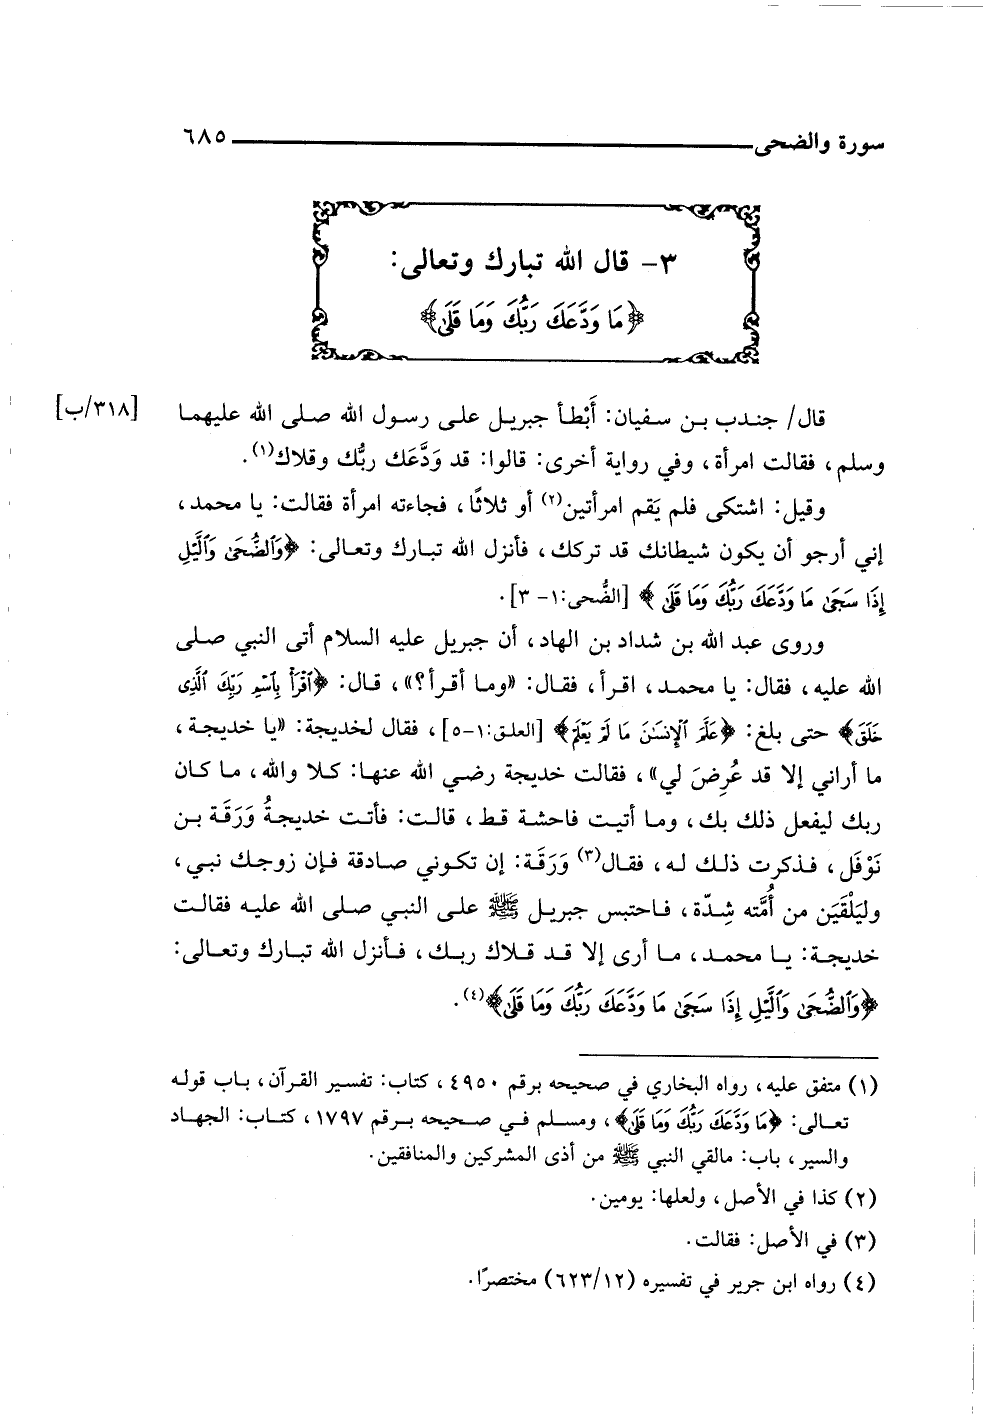 سورة والضحى ٦٨٥
٣- قال الله تبارك وتعالى:
﴿مَا وَدَّعَكَ رَبُّكَ وَمَا قَلَىٰ﴾
قال/ جندب بن سفيان: أَبْطأ جبريل على رسول الله صلى الله عليهما [٣١٨/ب]
وسلم، فقالت امرأة، وفي رواية أخرى: قالوا: قد وَدَّعَك ربُّك وقلاك(١).
وقيل: اشتكى فلم يَقم امرأتين(٢) أو ثلاثًا، فجاءته امرأة فقالت: يا محمد،
إني أرجو أن يكون شيطانك قد تركك، فأنزل الله تبارك وتعالى: ﴿وَٱلضُّحَىٰ وَٱلَّيْلِ
إِذَا سَجَىٰ مَا وَدَّعَكَ رَبُّكَ وَمَا قَلَىٰ﴾ [الضُّحى:١- ٣].
وروى عبد الله بن شداد بن الهاد، أن جبريل عليه السلام أتى النبي صلى
الله عليه، فقال: يا محمد، اقرأ، فقال: «وما أقرأ؟»، قال: ﴿ٱقْرَأْ بِٱسْمِ رَبِّكَ ٱلَّذِى
خَلَقَ﴾ حتى بلغ: ﴿عَلَّمَ ٱلْإِنسَٰنَ مَا لَمْ يَعْلَمْ﴾ [العلق:١-٥]، فقال لخديجة: «يا خديجة،
ما أراني إلا قد عُرِضَ لي»، فقالت خديجة رضي الله عنها: كلا والله، ما كان
ربك ليفعل ذلك بك، وما أتيت فاحشة قط، قالت: فأتت خديجةُ وَرَقَة بن
نَوْفَل، فذكرت ذلك له، فقال(٣) وَرَقَة: إن تكوني صادقة فإن زوجك نبي،
وليَلْقَيَن من أُمَّته شِدّة، فاحتبس جبريل ﷺ على النبي صلى الله عليه فقالت
خديجة: يا محمد، ما أرى إلا قد قلاك ربك، فأنزل الله تبارك وتعالى:
﴿وَٱلضُّحَىٰ وَٱلَّيْلِ إِذَا سَجَىٰ مَا وَدَّعَكَ رَبُّكَ وَمَا قَلَىٰ﴾(٤).
(١) متفق عليه، رواه البخاري في صحيحه برقم ٤٩٥٠، كتاب: تفسير القرآن، باب قوله
تعالى: ﴿مَا وَدَّعَكَ رَبُّكَ وَمَا قَلَىٰ﴾، ومسلم في صحيحه برقم ١٧٩٧، كتاب: الجهاد
والسير، باب: مالقي النبي ﷺ من أذى المشركين والمنافقين.
(٢) كذا في الأصل، ولعلها: يومين.
(٣) في الأصل: فقالت.
(٤) رواه ابن جرير في تفسيره (٦٢٣/١٢) مختصرًا.